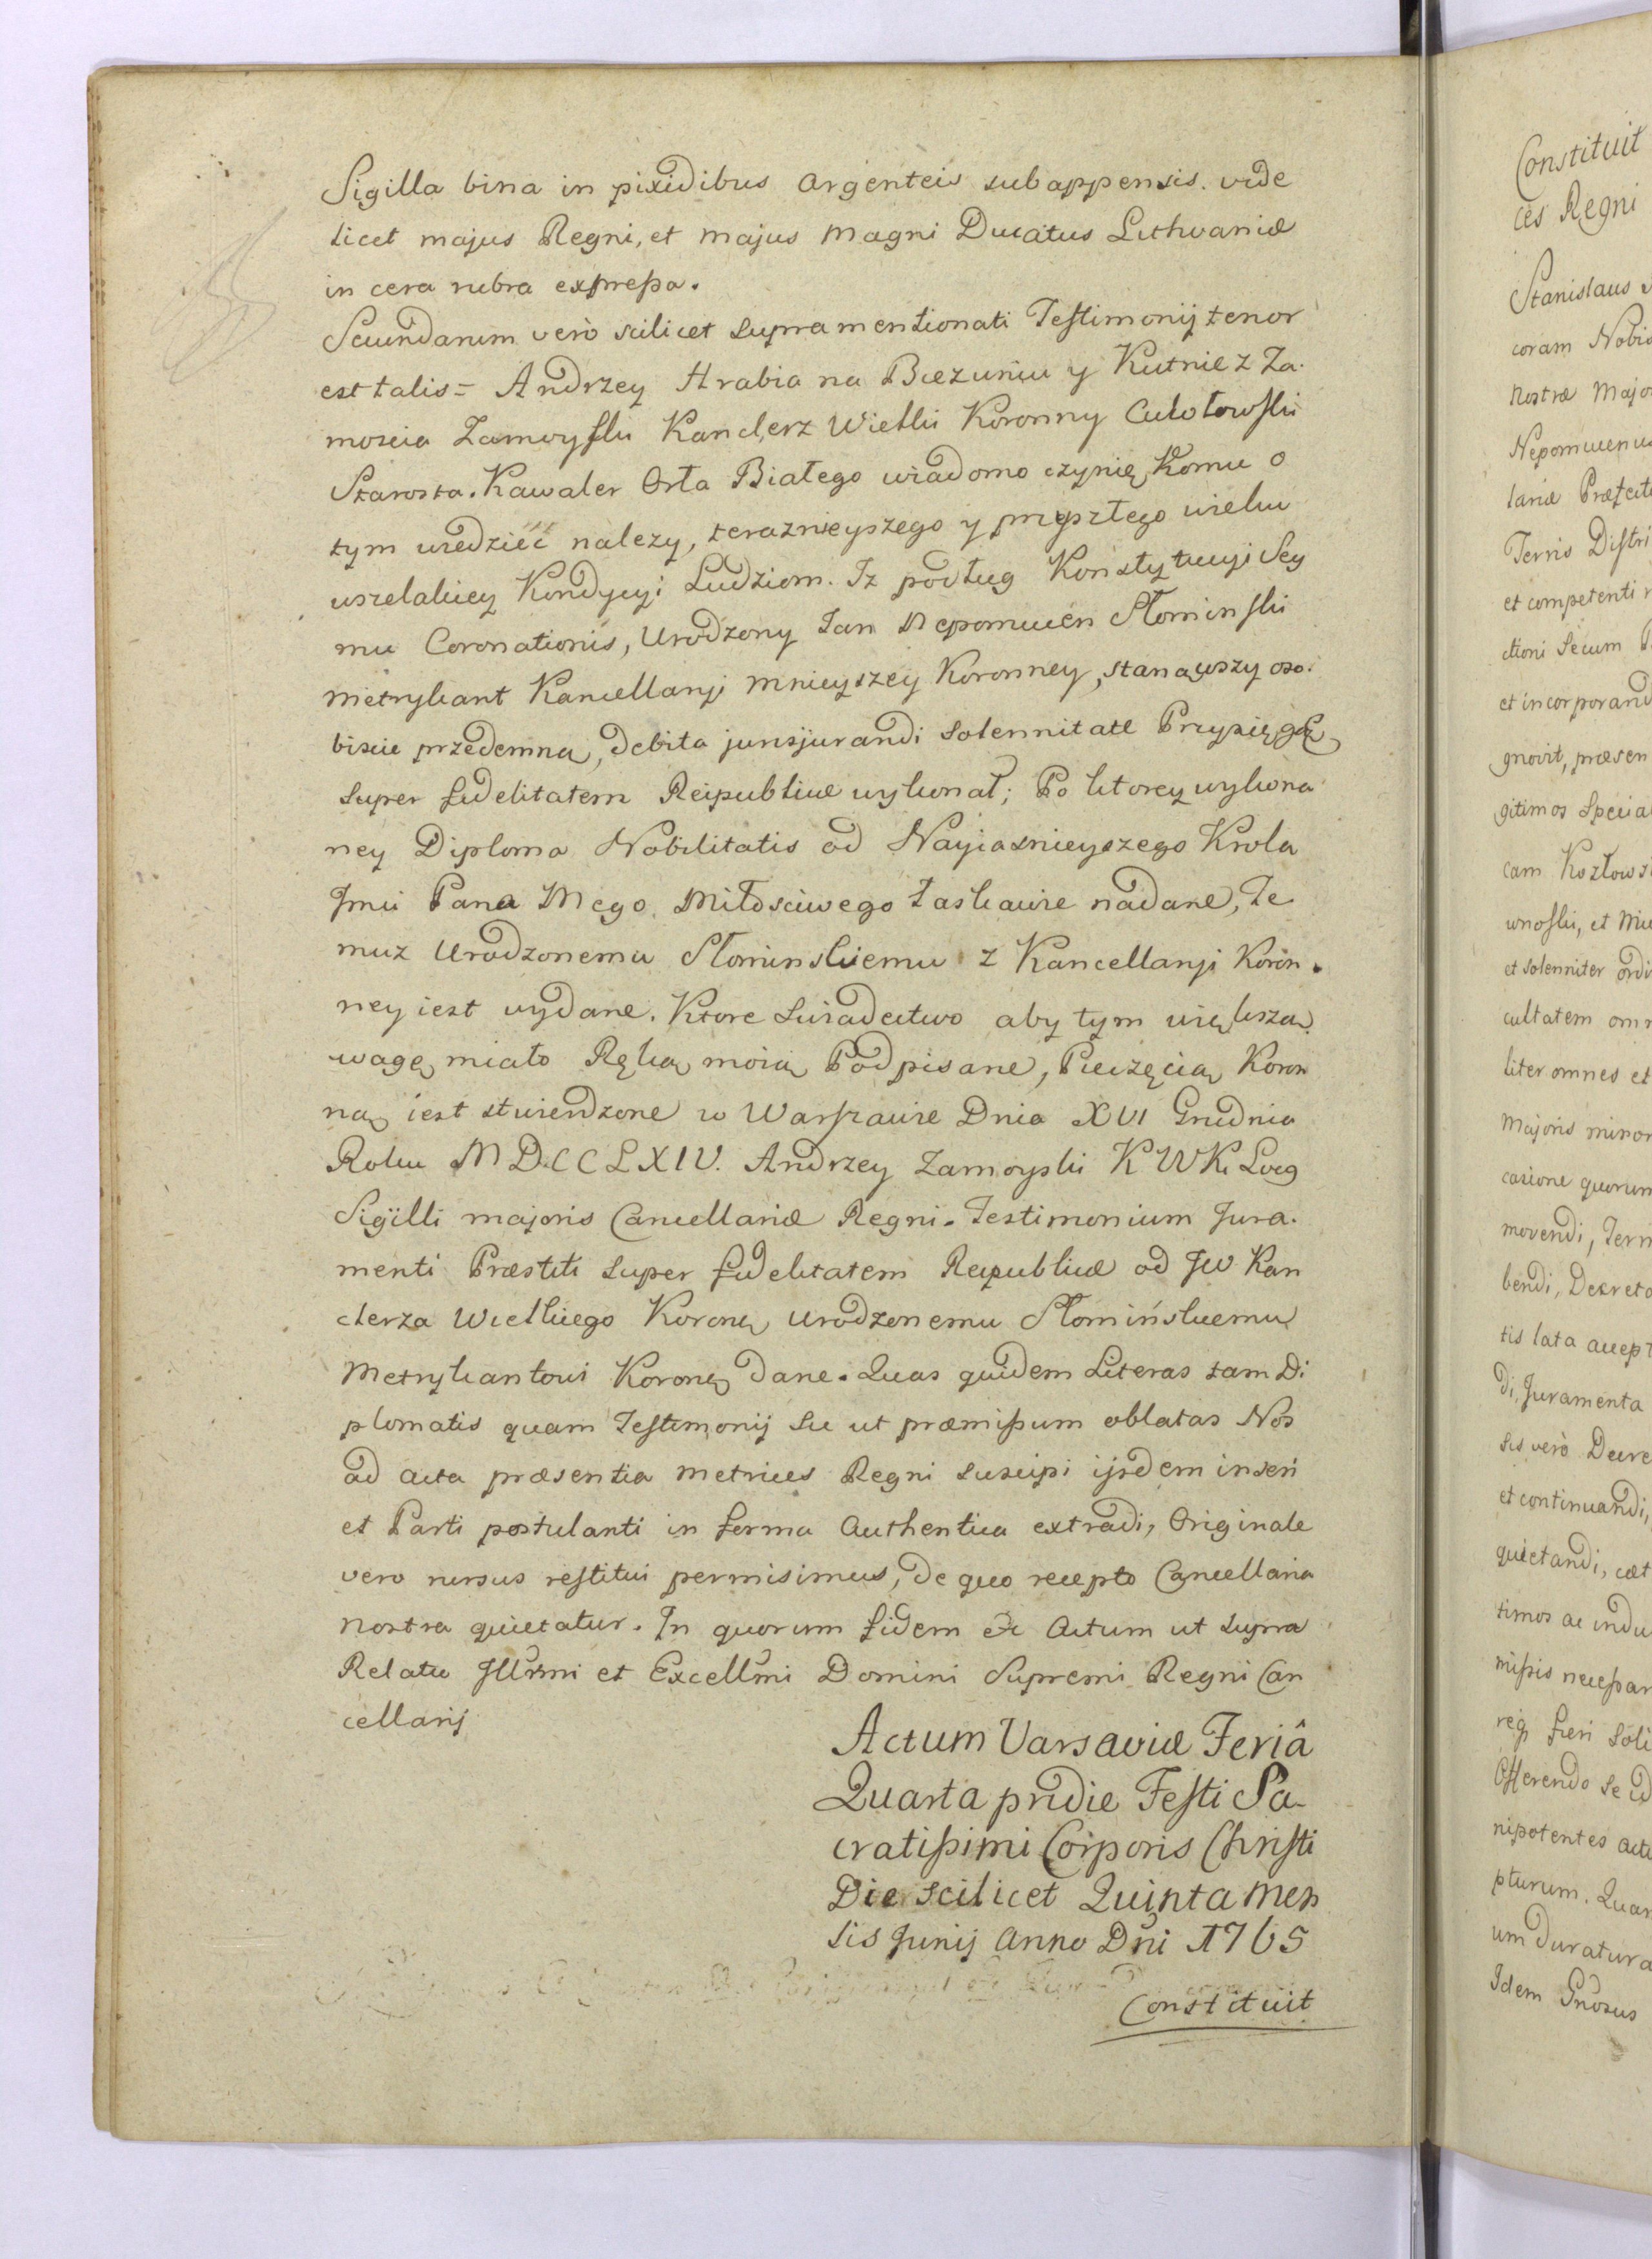 Sigilla bina in pixidibus argenteis subappensis. vide
licet majus Regni, et majus Magni Ducatus Lithvaniæ
in cera rubra expressa.
Secundarum verò scilicet supramentionati Testimonij tenor
est talis = Andrzey Hrabia na Biezuniu y Kutnie z Za.
moscia Zamoyski Kanclerz Wielki Koronny
Starosta. Kawaler Orła Białego wiadomo czynię, Komu o
tym wiedzieć nalezy, teraznieyszego y przyszłego wieku
wszelakiey Kondycyi Ludziom. Iz podług Konstytucyi Sey
mu Coronationis, Urodzony Jan Nepomucen Słominski
Metrykant Kancellaryi mnieyszey Koronney, stanąwszy oso.
biscie przedemną, debita jurisjurandi solennitate Przysięgę
super fidelitatem Reipublicæ wykonał; Po ktorey wykona
ney Diploma Nobilitatis od Nayiasnieyszego Krola
Jmci Pana Mego Miłosciwego łaskawie nadane, Te
muz Urodzonemu Słominskiemu z Kancellaryi Koron.
ney iest wydane. Ktore Swiadectwo aby tym większą
wagę miało Ręką moią Podpisane, Pieczęcią Koron
ną iest stwierdzone w Warszawie Dnia XVI Grudnia
Roku MDCCLXIV. Andrzey Zamoyski KWK Locq
Sigilli majoris Cancellariæ Regni. Testimonium Jura.
menti Præstiti super fidelitatem Reipublicæ od JW Kan
clerza Wielkiego Koronę Urodzonemu Słomińskiemu
Metrykantowi Koronę dane. Quas quidem Literas tam Di
plomatis quam Testimonij sic ut præmissum oblatas Nos
ad acta præsentia metrices Regni suscipi ijsdem inseri
et Parti postulanti in forma authentica extradi, Originale
vero rursus restitui permisimus, de quo recepto Cancellaria
nostra quietatur. In quorum fidem &c Actum ut supra
Relatio Illrmi et Excellmi Domini Supremi Regni Can
cellarij
Actum Varsaviæ Feriâ
Quarta pridie Festi Sa-
cratissimi Corporis Christi
Die scilicet Quinta Men
sis Junij Anno Dni 1765
Constituit
Constituit
ces Regni
Stanislaus
coram Nobis
Nostræ Majo
Nepomucenus
lariæ Præfect
Terris Distri
et competenti
ctioni secum
et incorporand
gnovit, præsen
gitimos Specia
cam Kozłows
wnoski, et Mic
et solenniter ordi
cultatem omn
liter omnes et
Majoris minor
casione quorum
movendi, Term
bendi, Decreto
tis lata accept
di, Juramenta
sis verò Decre
et continuandi,
quietandi, cæt
timos ac indu
missis necessar
req fieri soli
Offerendo se
nipotentes actu
pturum. Quar
um duratura
Idem Gnosus